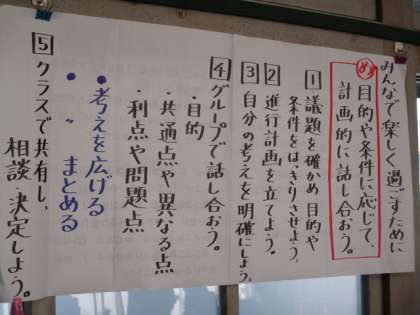 みんなで楽しく過ごすために
め 目的や条件に応じて、
計画的に話し合おう。
1 議題を確かめ、目的や
条件をはっきりさせよう。
2 進行計画を立てよう。
3 自分の考えを明確にしよう。
4 グループで話し合おう。
・目的
・共通点や異なる点
・利点や問題点
・考えを広げる
・ 〃 まとめる
5 クラスで共有し、
相談・決定しよう。